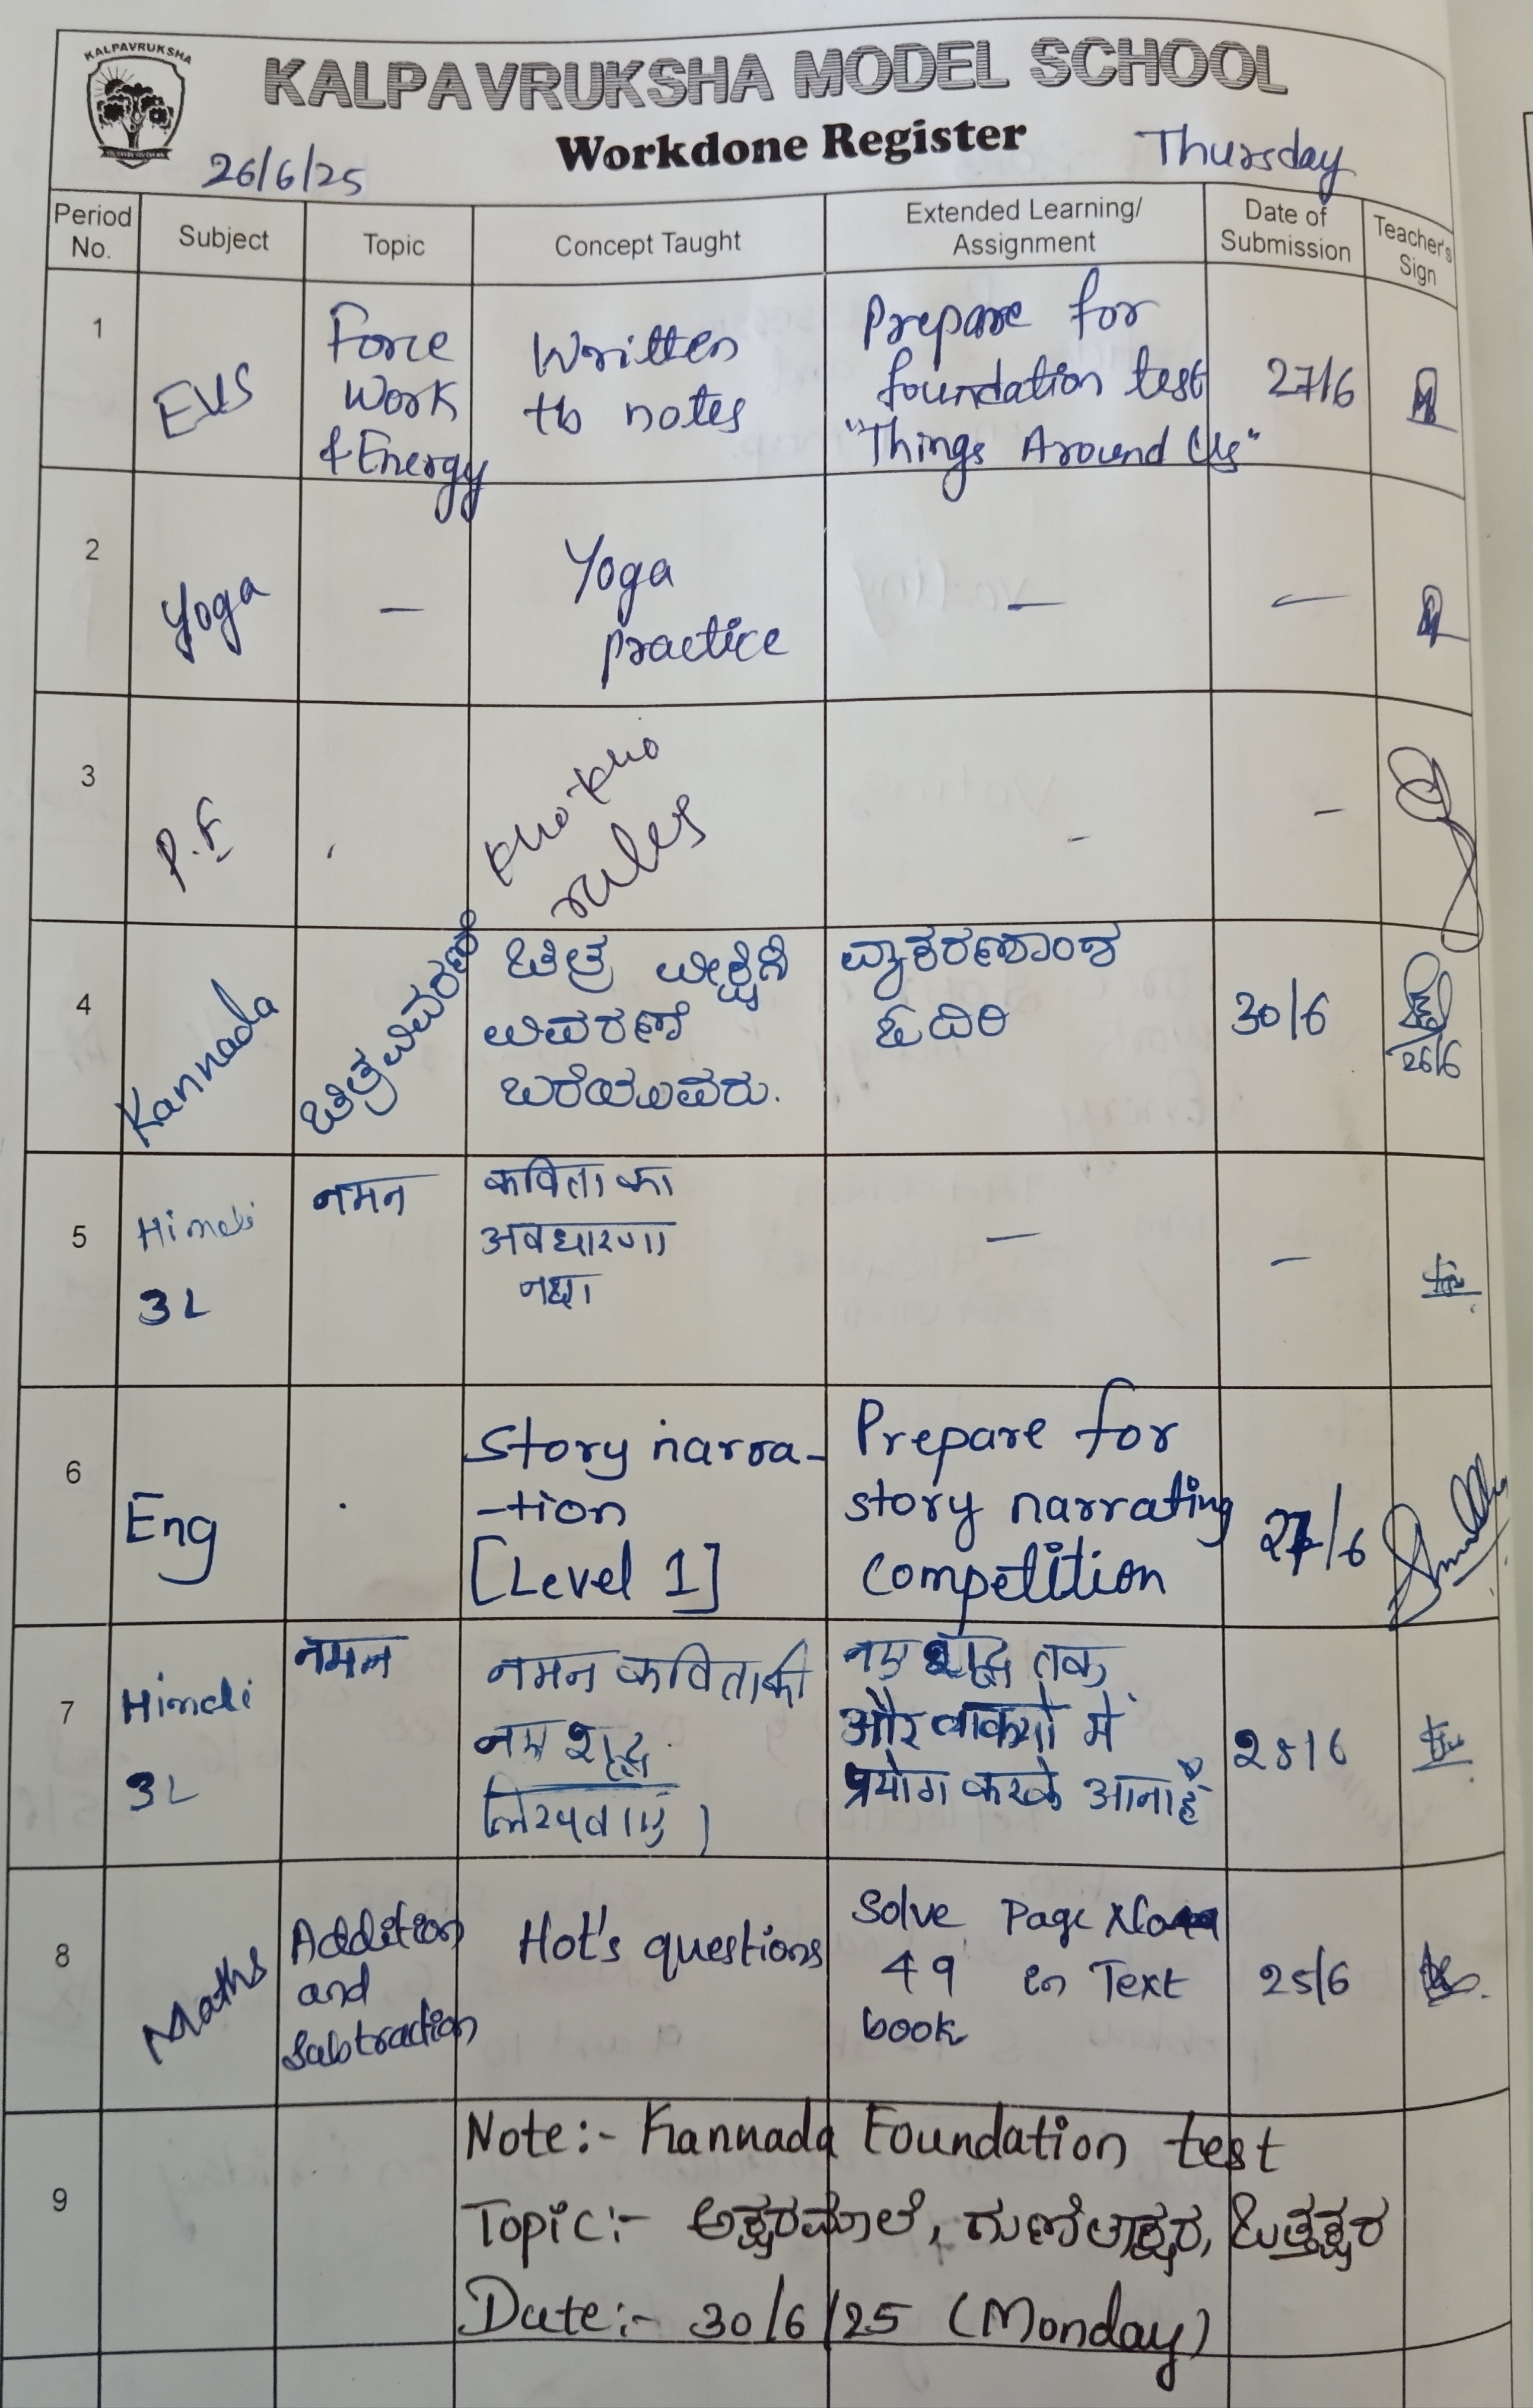 KALPAVRUKSHA
KALPAVRUKSHA MODEL SCHOOL
Workdone Register
26/6/25
Thursday
Period No.
Subject
Topic
Concept Taught
Extended Learning/ Assignment
Date of Submission
Teacher's Sign
1
EVS
Force
Work
& Energy
Written
tb notes
Prepare for
foundation test
"Things Around Us"
27/6
2
Yoga
—
Yoga
practice
—
—
3
P.E
Kho-Kho
rules
-
-
4
Kannada
ಚಿತ್ರ ವಿವರಣೆ
ಚಿತ್ರ ವೀಕ್ಷಿಸಿ
ವಿವರಣೆ
ಬರೆಯುವರು.
ವ್ಯಾಕರಣಾಂಶ
ಓದಿರಿ
30/6
26/6
5
Hindi
3L
नमन
कविता का
अवधारणा
नक्षा
—
—
6
Eng
Story narra-
-tion
[Level 1]
Prepare for
story narrating
competition
27/6
7
Hindi
3L
नमन
नमन कविता की
नए शब्द
लिखवाएं।
नए शब्द तक
और वाक्यों में
प्रयोग करके आना है
28/6
8
Maths
Addition
and
Subtraction
Hot's questions
Solve Page No
49 in Text
book
25/6
9
Note:- Kannada Foundation test
Topic:- ಅಕ್ಷರಮಾಲೆ, ಗುಣಿತಾಕ್ಷರ, ಒತ್ತಕ್ಷರ
Date:- 30/6/25 (Monday)